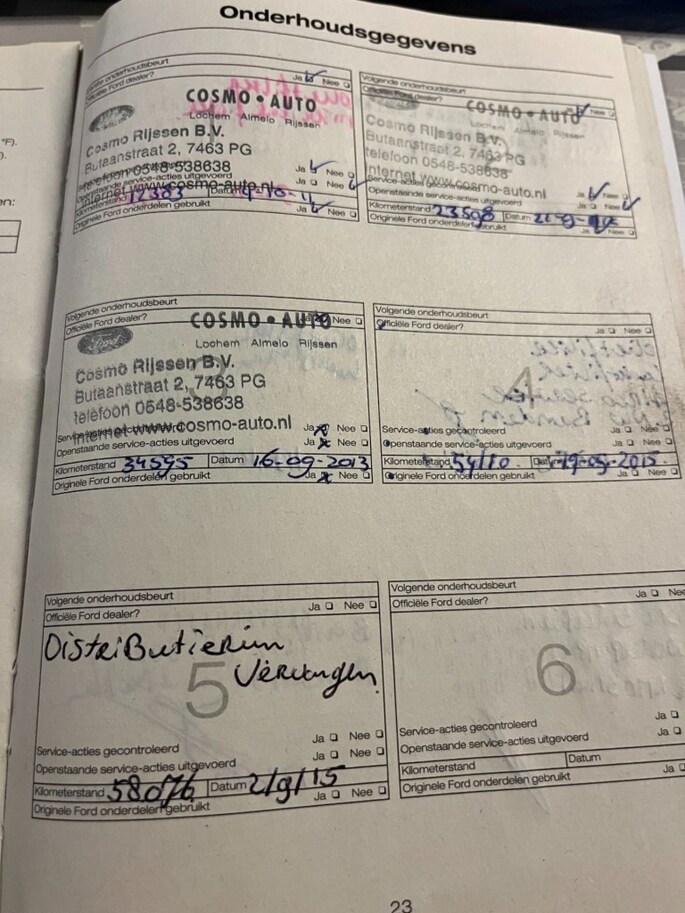 Onderhoudsgegevens
Volgende onderhoudsbeurt
Officiële Ford dealer? Ja Nee
COSMO • AUTO
Lochem Almelo Rijssen
Cosmo Rijssen B.V.
Butaanstraat 2, 7463 PG
telefoon 0548-538638
internet www.cosmo-auto.nl
Ja
Openstaande service-acties uitgevoerd Ja Nee
Kilometerstand 12383 Datum
Originele Ford onderdelen gebruikt Ja Nee
Volgende onderhoudsbeurt
Officiële Ford dealer?
COSMO • AUTO
Lochem Almelo Rijssen
Cosmo Rijssen B.V.
Butaanstraat 2, 7463 PG
telefoon 0548-538638
internet www.cosmo-auto.nl
Openstaande service-acties uitgevoerd Ja Nee
Kilometerstand 23598 Datum
Originele Ford onderdelen gebruikt Ja Nee
Volgende onderhoudsbeurt
Officiële Ford dealer? Nee
COSMO • AUTO
Ford
Lochem Almelo Rijssen
Cosmo Rijssen B.V.
Butaanstraat 2, 7463 PG
telefoon 0548-538638
internet www.cosmo-auto.nl
Service-acties gecontroleerd Ja Nee
Openstaande service-acties uitgevoerd Ja Nee
Kilometerstand 34595 Datum 16-09-2013
Originele Ford onderdelen gebruikt Ja Nee
Volgende onderhoudsbeurt
Officiële Ford dealer? Ja Nee
4
Service-acties gecontroleerd Ja Nee
Openstaande service-acties uitgevoerd Ja Nee
Kilometerstand 54110 Datum 19-05-2015
Originele Ford onderdelen gebruikt Ja Nee
Volgende onderhoudsbeurt
Officiële Ford dealer? Ja Nee
Distributieriem
5
Vervangen
Service-acties gecontroleerd Ja Nee
Openstaande service-acties uitgevoerd Ja Nee
Kilometerstand Datum 2/9/15
Originele Ford onderdelen gebruikt Ja Nee
Volgende onderhoudsbeurt
Officiële Ford dealer? Ja Nee
6
Service-acties gecontroleerd Ja
Openstaande service-acties uitgevoerd Ja
Kilometerstand Datum
Originele Ford onderdelen gebruikt Ja
23